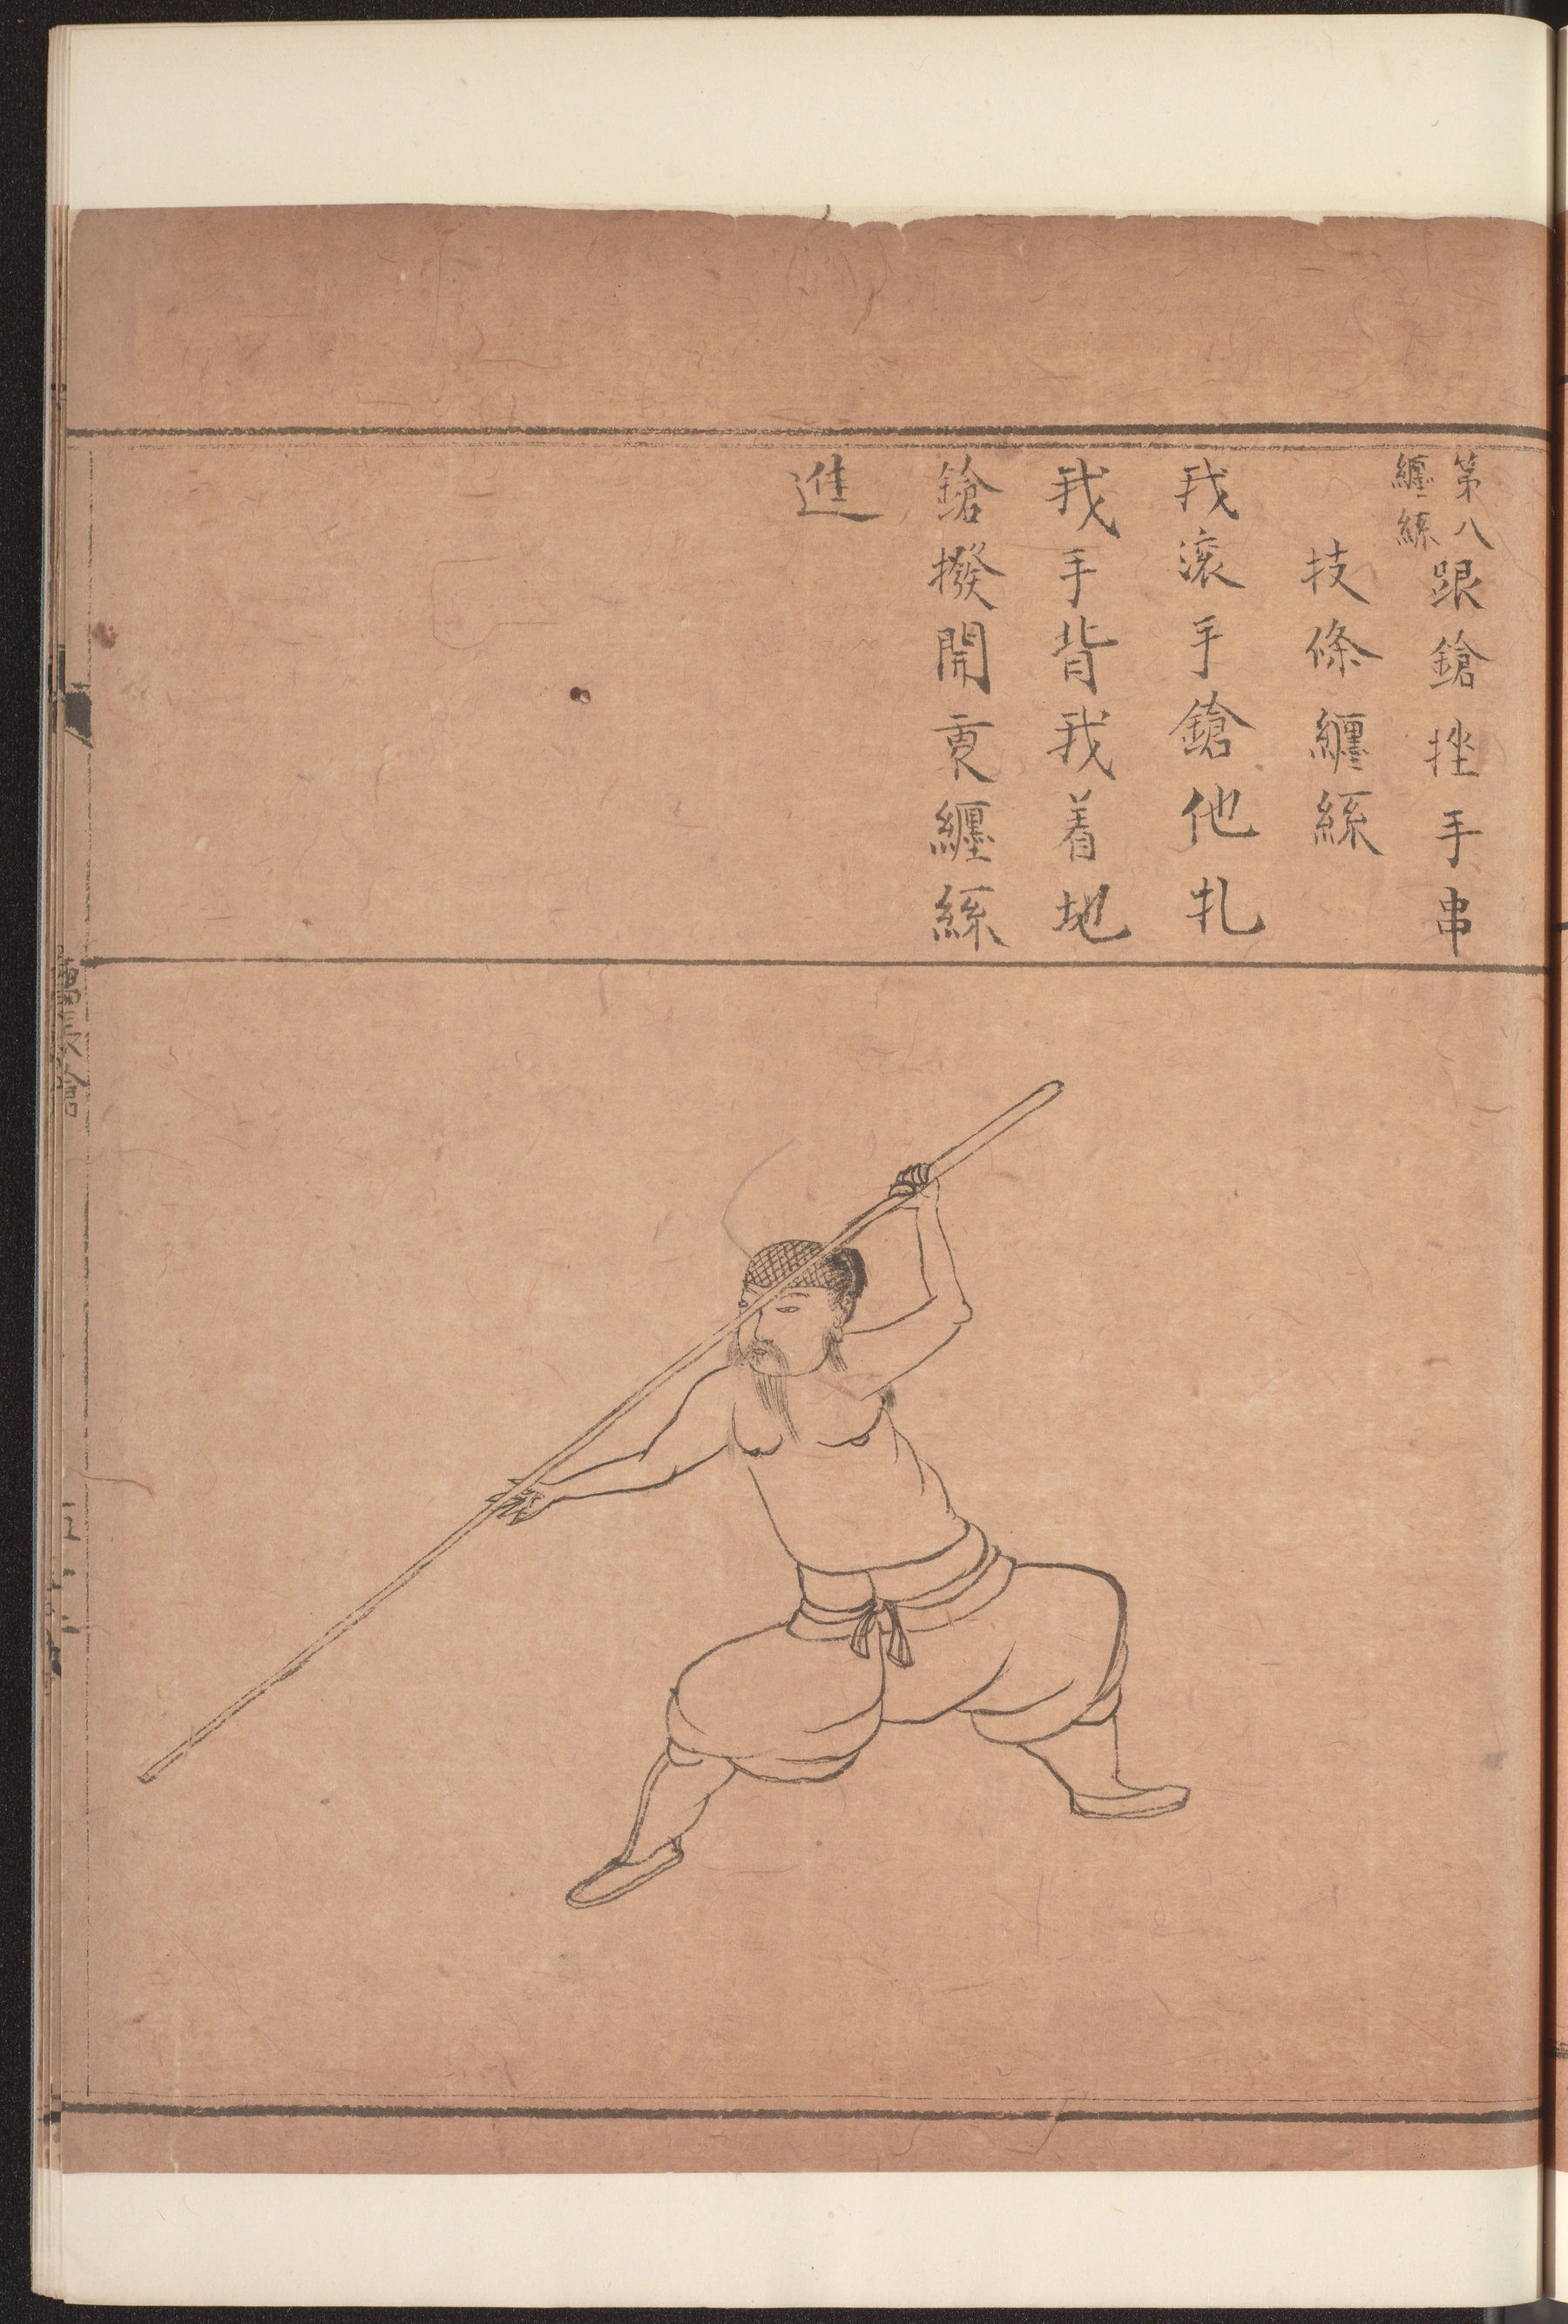 第八
纏絲
跟鎗挫手串
技條纏絲
我滚手鎗他扎
我手背我着地
鎗撥開更纏絲
進